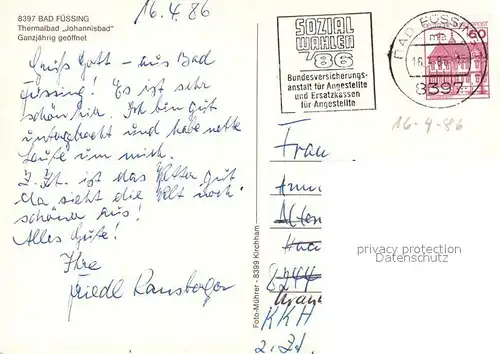 8397 BAD FÜSSING
Thermalbad „Johannisbad"
Ganzjährig geöffnet
16.4.86
Grüß Gott – aus Bad
Füssing! Es ist sehr
schön hier. Ich bin gut
untergebracht und habe nette
Leute um mich.
Z. Zt. ist das Wetter gut
da sieht die Welt noch
schöner aus!
Alles Gute!
Ihre
Friedl
Foto-Mührer - 8399 Kirchham
SOZIAL
WAHLEN
'86
Bundesversicherungs-
anstalt für Angestellte
und Ersatzkassen
für Angestellte
BAD FÜSSING
8397
60
16-4-86
Frau
8244
KKH
z. Zt.
privacy protection
Datenschutz